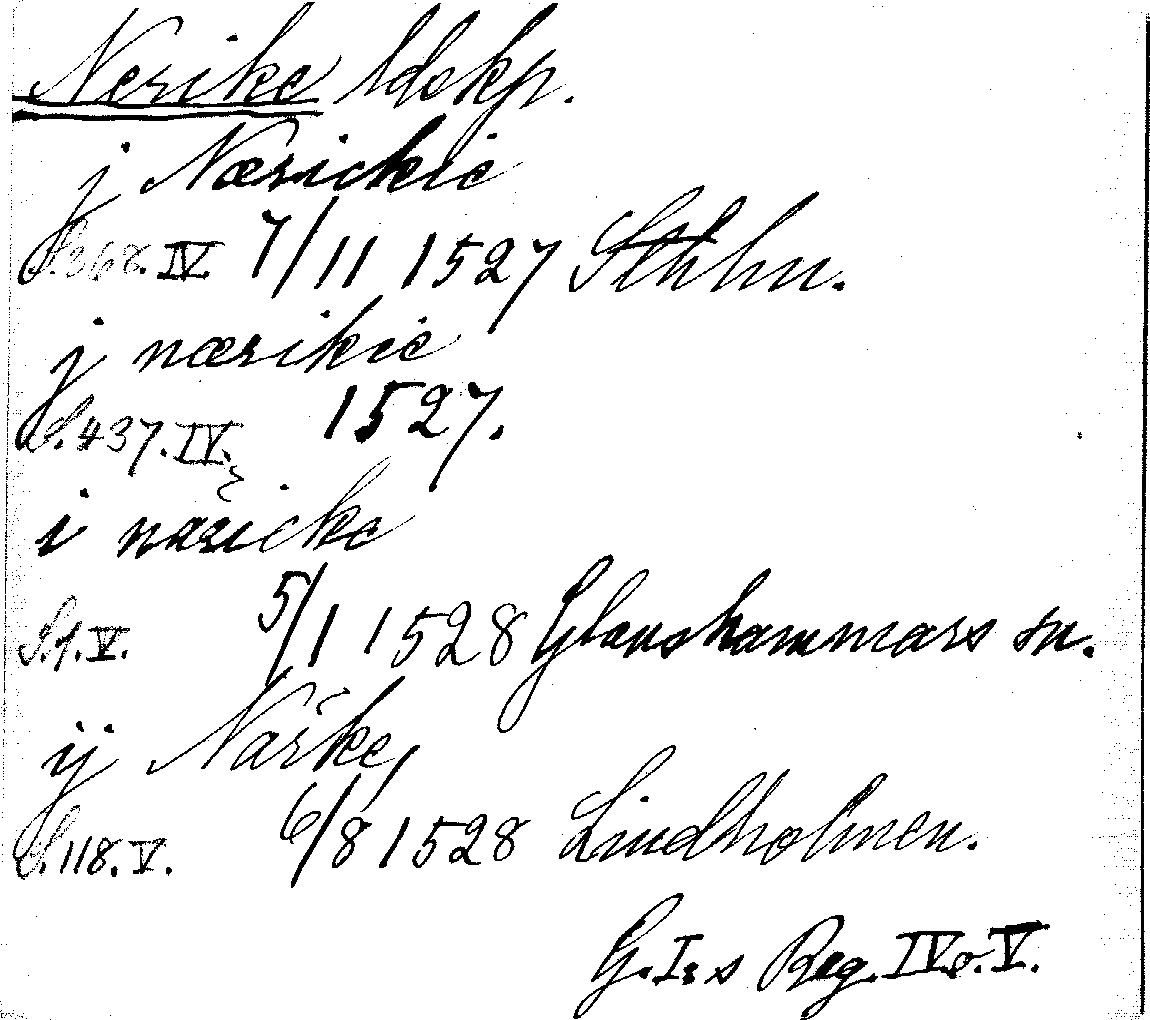 Nerike ldskp.
j Nærickie
S. 368. IV 7/11 1527 Sthlm.
j nærikie
S. 437. IV. 1527.
i naricke
S. 1. V. 5/1 1528 Glanshammars sn.
ij Narke,
S. 118. V. 6/8 1528 Lindholmen.
G. I:s Reg. IV o. V.